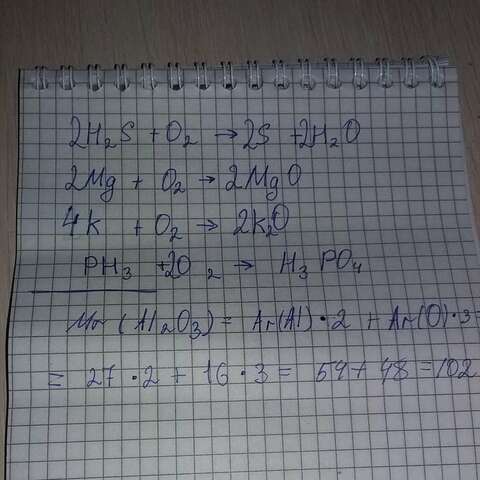 2H₂S + O₂ → 2S + 2H₂O
2Mg + O₂ → 2MgO
4K + O₂ → 2K₂O
PH₃ + 2O₂ → H₃PO₄
Mr (Al₂O₃) = Ar(Al)·2 + Ar(O)·3=
= 27·2 + 16·3 = 54 + 48 = 102